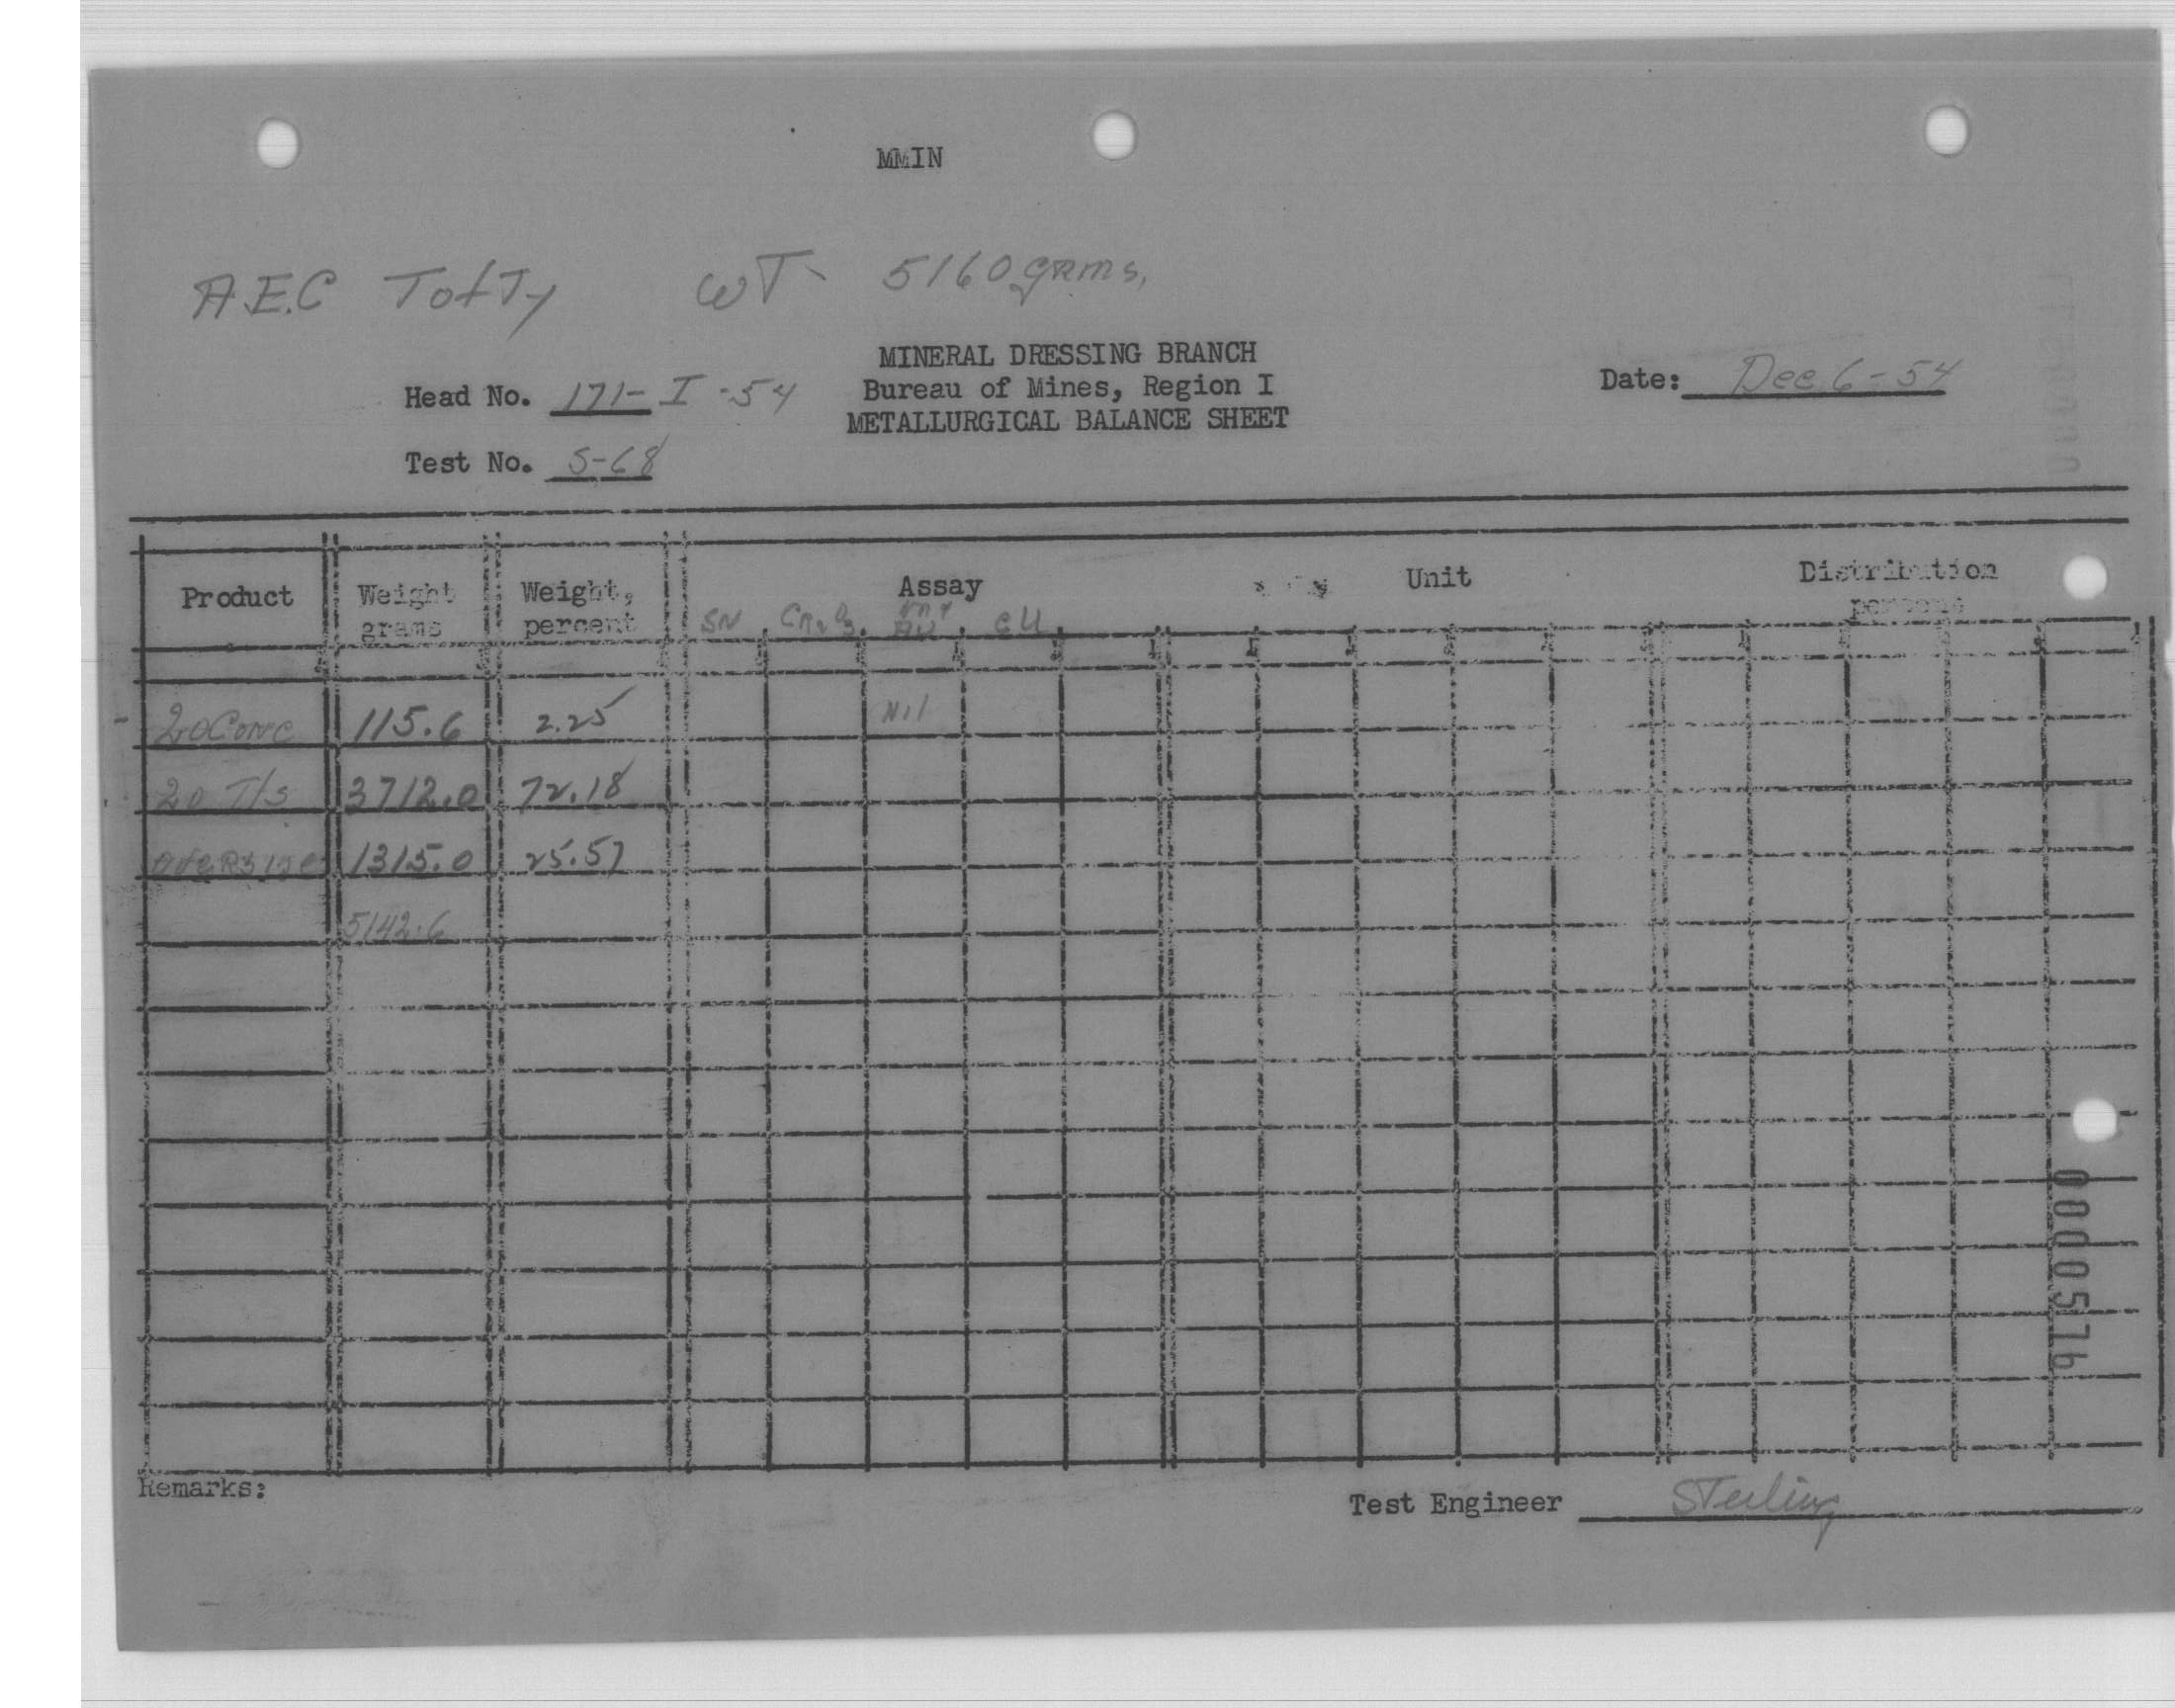 MMIN
A.E.C Tofty WT- 5160 grms.
MINERAL DRESSING BRANCH
Head No. 171-I-54 Bureau of Mines, Region I Date: Dec 6-54
METALLURGICAL BALANCE SHEET
Test No. S-68
Product Weight grams Weight, percent Assay Unit Distribution percent
SN Cr2O3 Au eU
20 Conc 115.6 2.25 Nil
20 T/s 3712.0 72.18
oversize 1315.0 25.57
5142.6
Remarks:
Test Engineer Sterling
0000576